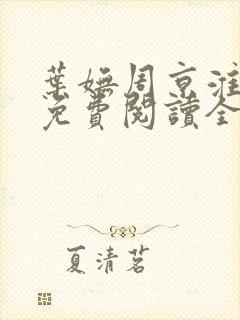 葉嫵周京淮
免費閱讀全
夏清茗